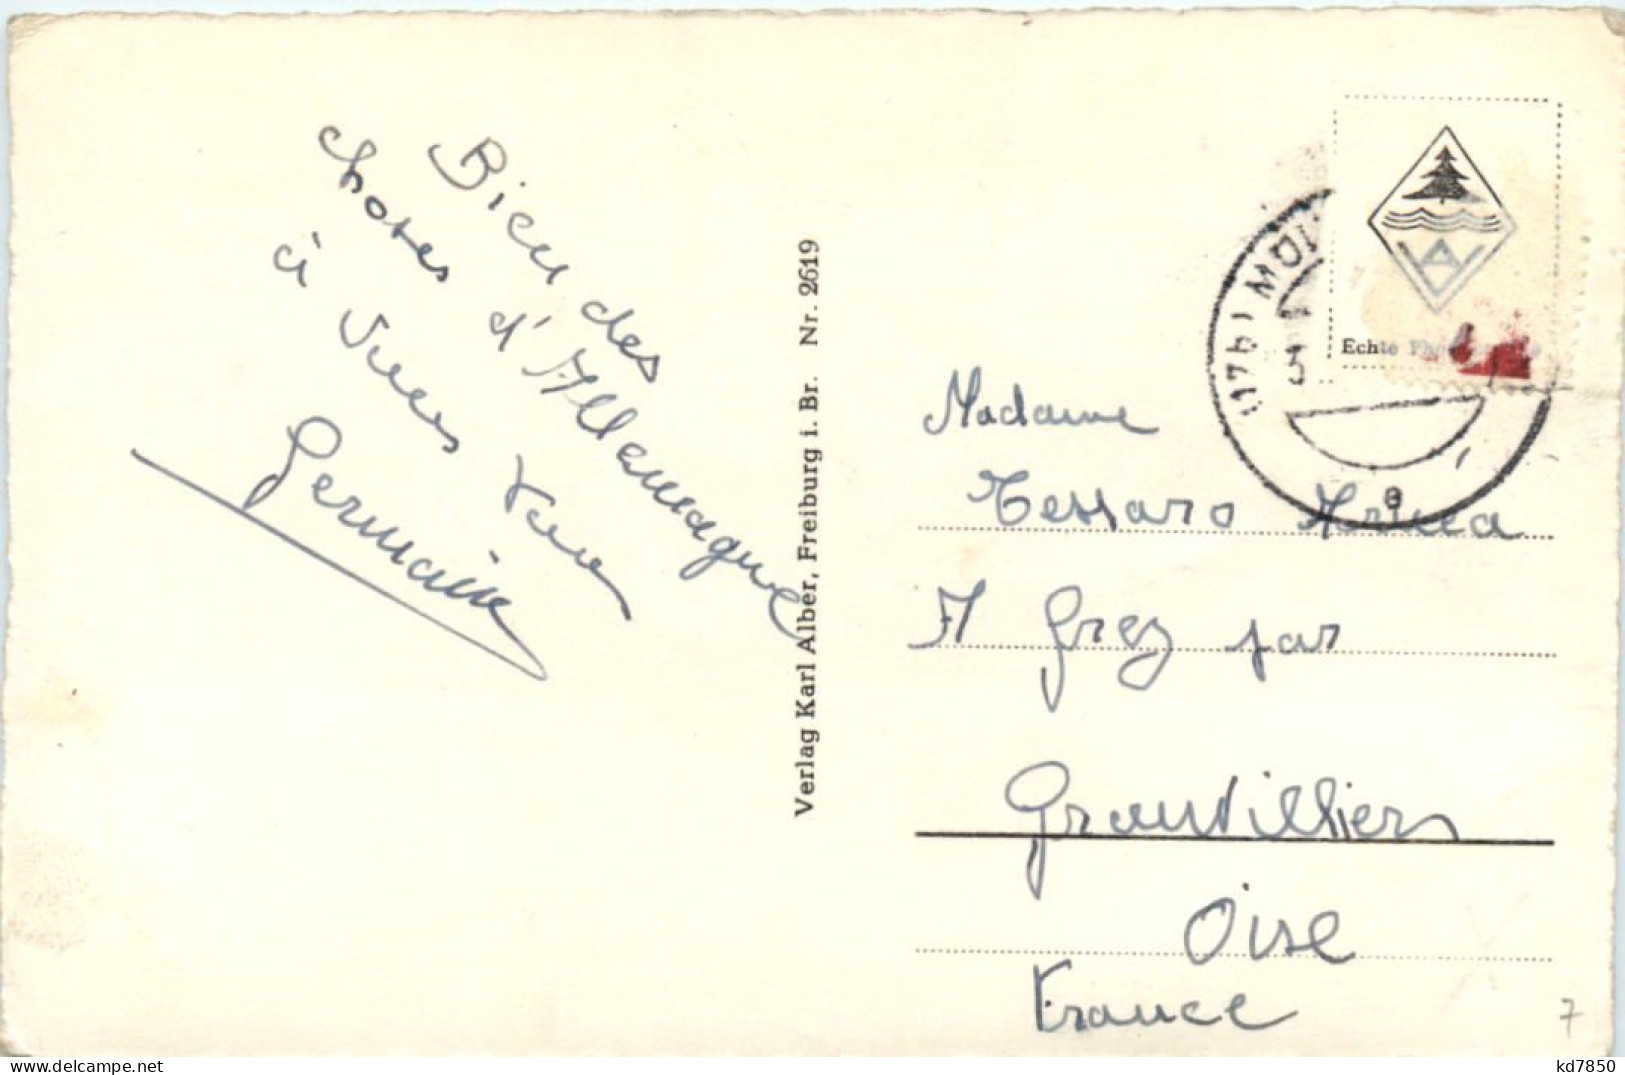 Bien des
choses d'Allemagne
à
Germaine
Verlag Karl Alber, Freiburg i. Br. Nr. 2619
(17b) MOI
3
a
Echte
Madame
Tessaro
A Grez par
Grandvilliers
Oise
France
7
kd7850